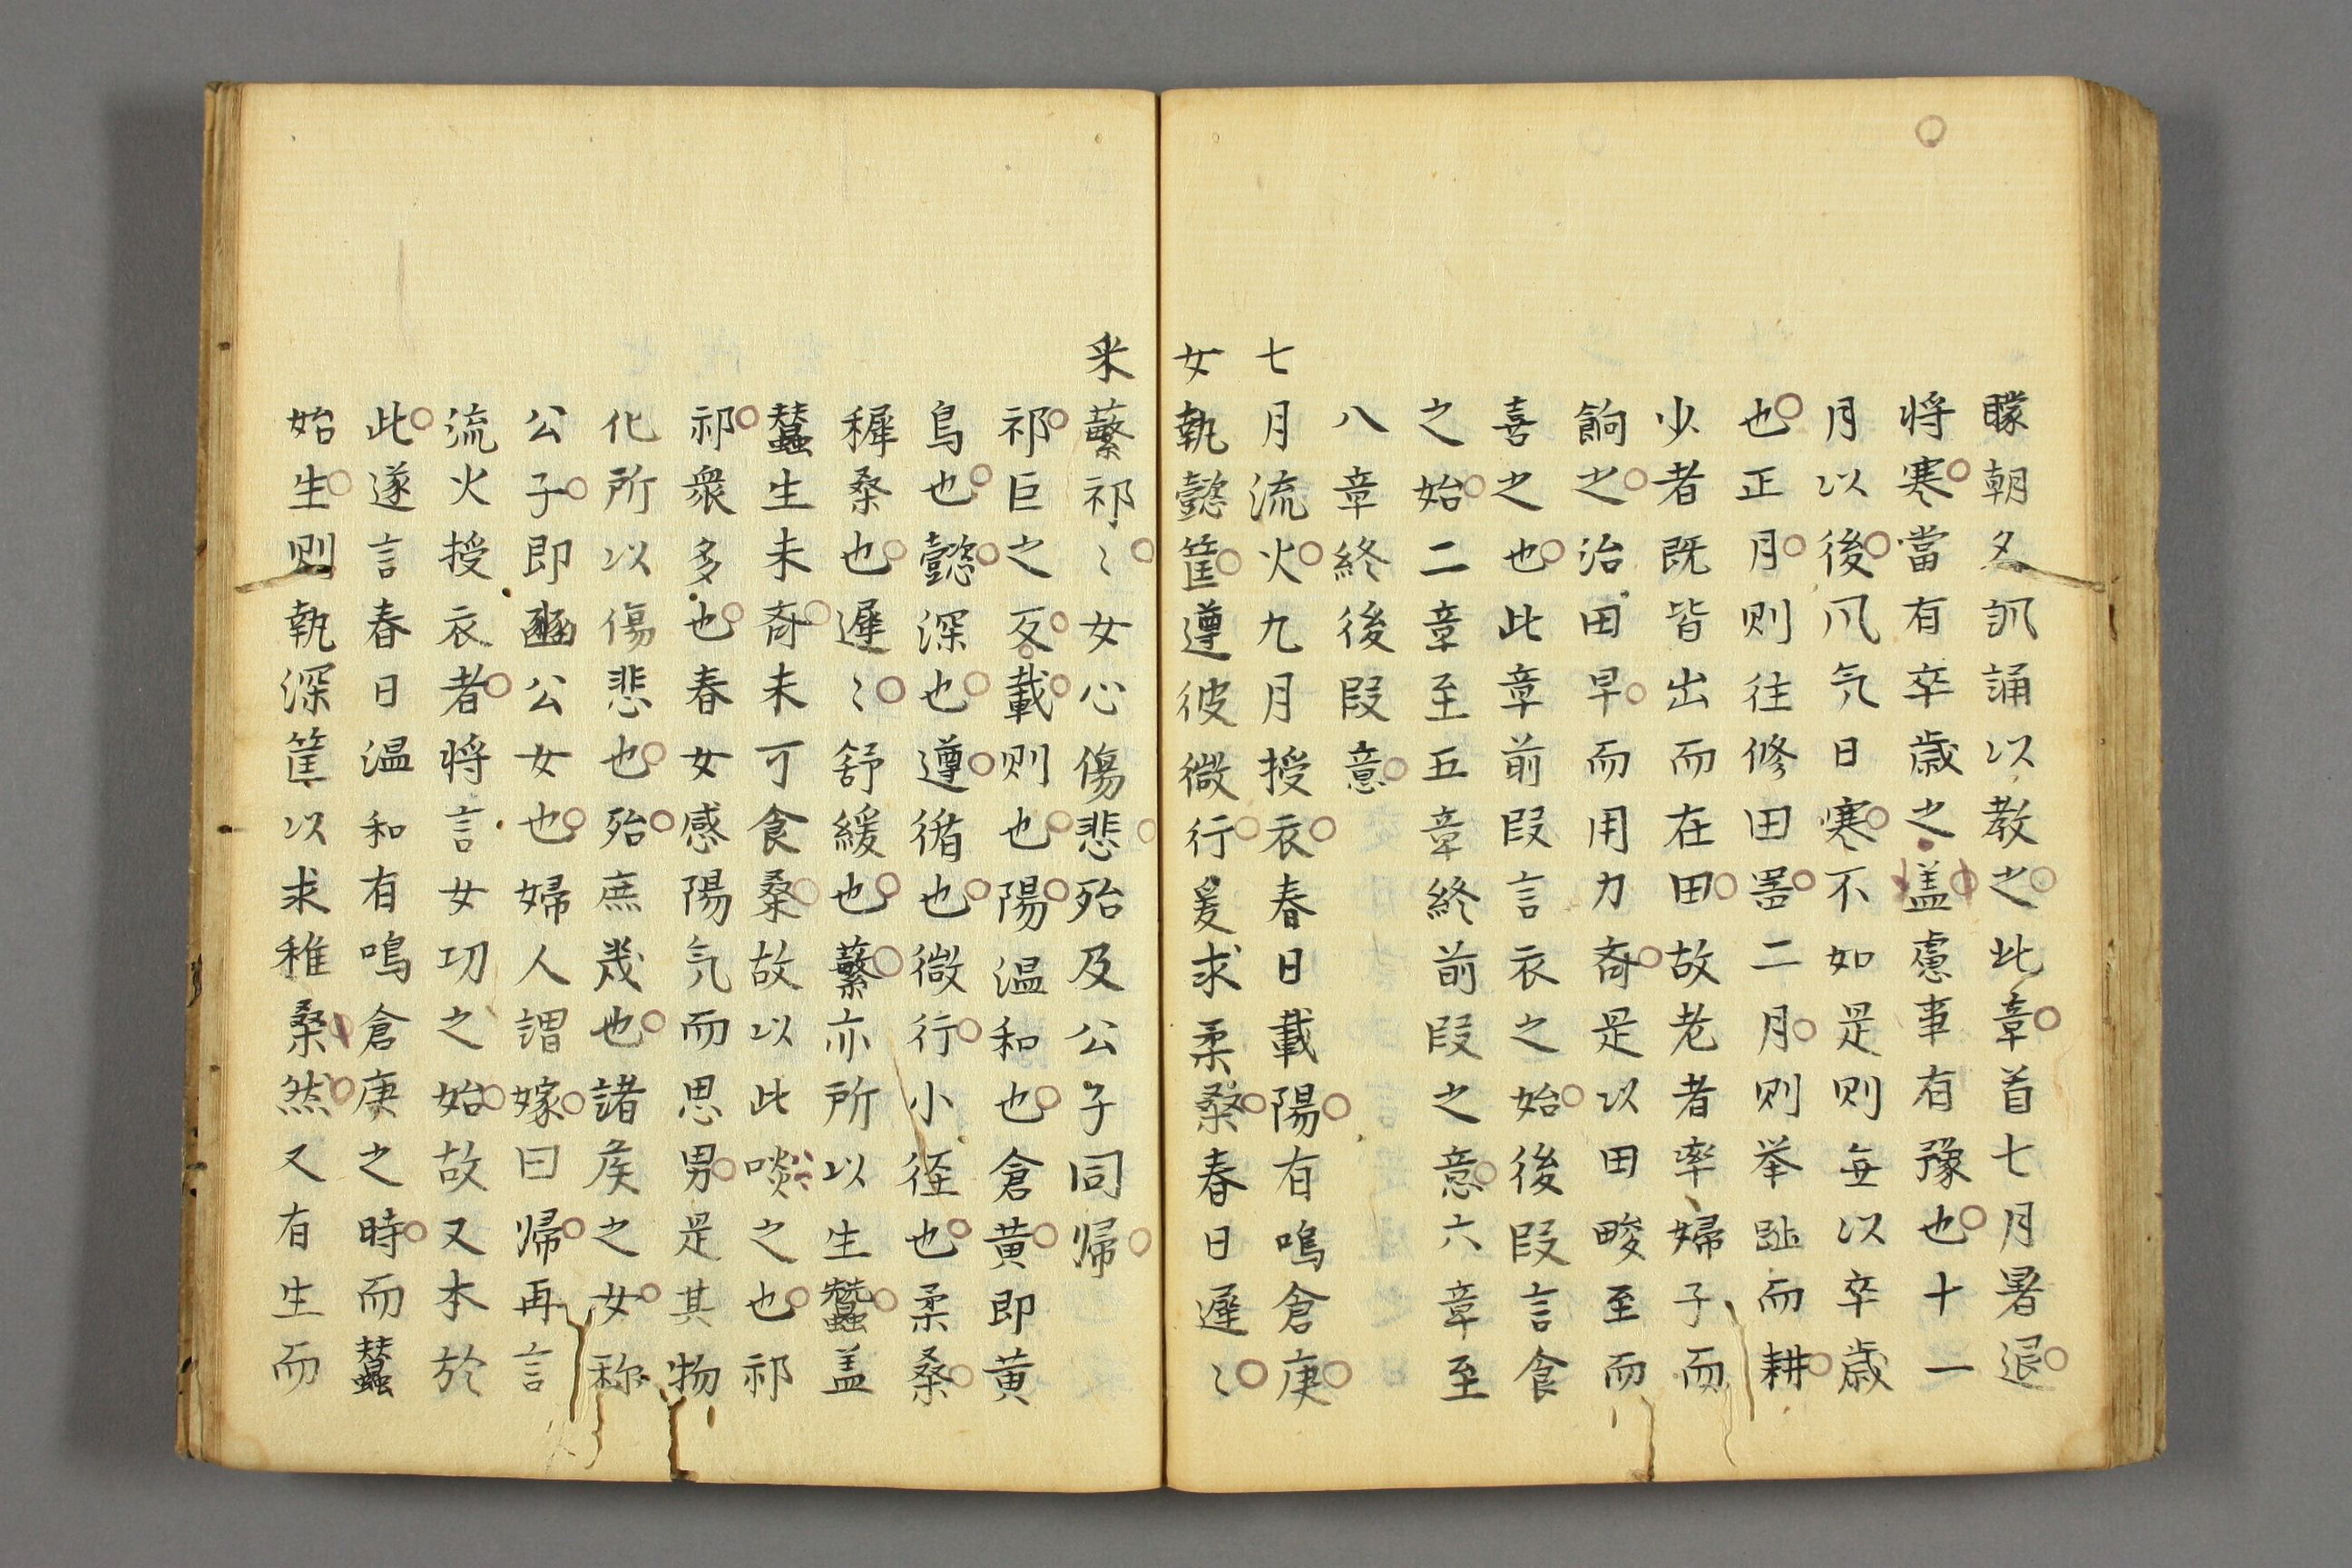 矇朝夕訊誦以教之此章首七月暑退
将寒當有卒歳之盖慮事有豫也十一
月以後凨気日寒不如是则無以卒歳
也正月则往修田噐二月则举趾而耕
少者既皆出而在田故老者率婦子而
餉之治田早而用力斎是以田畯至而
喜之也此章前段言衣之始後段言食
之始二章至五章終前段之意六章至
八章終後段意
七月流火九月授衣春日載陽有鳴倉庚
女執懿筐遵彼微行爰求柔桒春日遲〻
采蘩祁〻女心傷悲殆及公子同帰
祁巨之反載则也陽温和也倉黄即黄
鳥也懿深也遵循也微行小径也柔桒
穉桒也遲〻舒緩也蘩亦所以生蠶盖
蚕生未斎未可食桒故以此啖之也祁
祁衆多也春女感陽気而思男是其物
化所以傷悲也殆庶幾也諸矦之女称
公子即豳公女也婦人謂嫁曰帰再言
流火授衣者将言女功之始故又本於
此遂言春日温和有鳴倉庚之時而蚕
始生则執深筐以求稚桒然又有生而